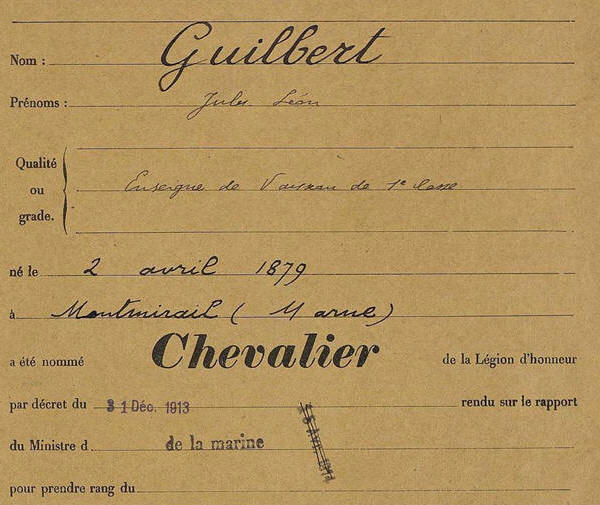 Nom : Guilbert
Prénoms : Jules Léon
Qualité
ou Enseigne de Vaisseau de 1e classe
grade.
né le 2 avril 1879
à Montmirail (Marne)
a été nommé Chevalier de la Légion d'honneur
par décret du 31 Déc. 1913 rendu sur le rapport
du Ministre d de la marine
pour prendre rang du